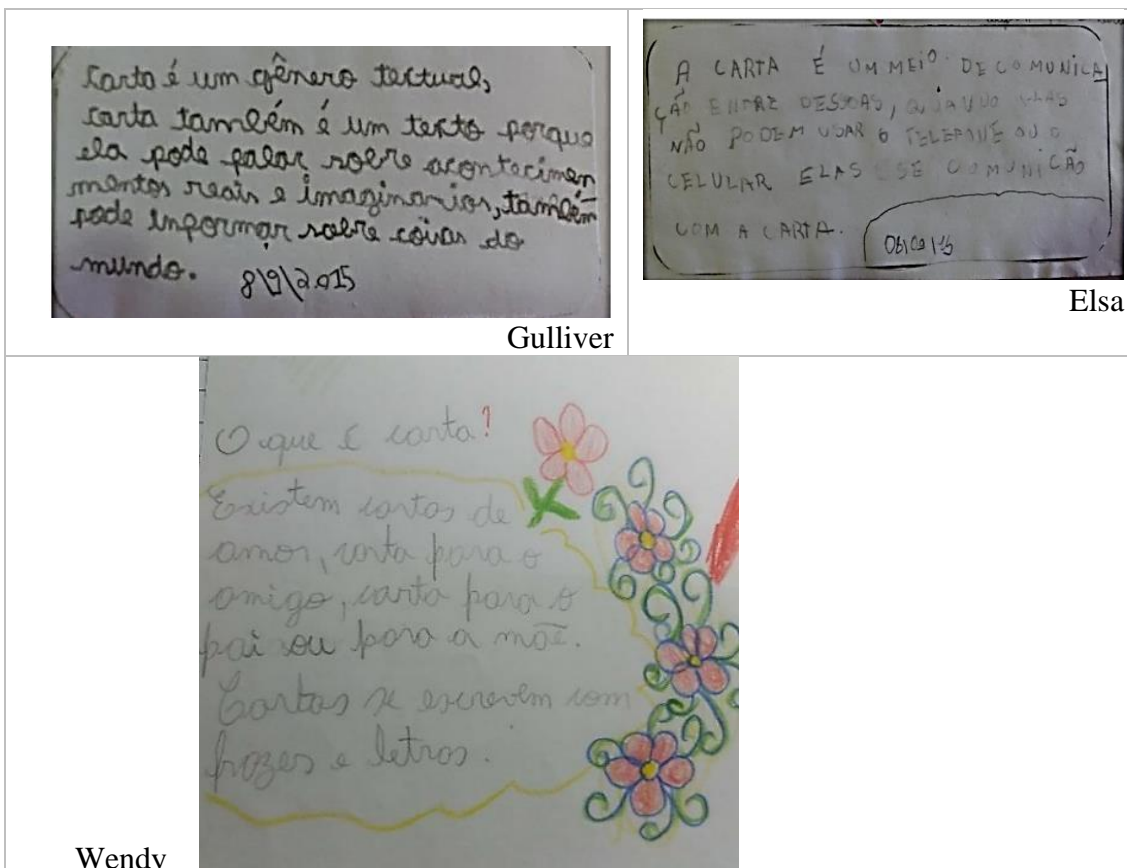 Carta é um gênero tectual,
carta também é um texto porque
ela pode falar sobre acontecimen
mentos reais e imaginarios, também
pode informar sobre coisas do
mundo. 8/9/2015
Gulliver
A CARTA É UM MEIO DE COMUNICA
ÇÃO ENTRE PESSOAS, QUANDO ELAS
NÃO PODEM USAR O TELEFONE OU O
CELULAR ELAS SE COMUNICÃO
COM A CARTA.
Elsa
O que é carta!
Existem cartas de
amor, carta para o
amigo, carta para o
pai ou para a mãe.
Cartas se escrevem com
frozes e letras.
Wendy